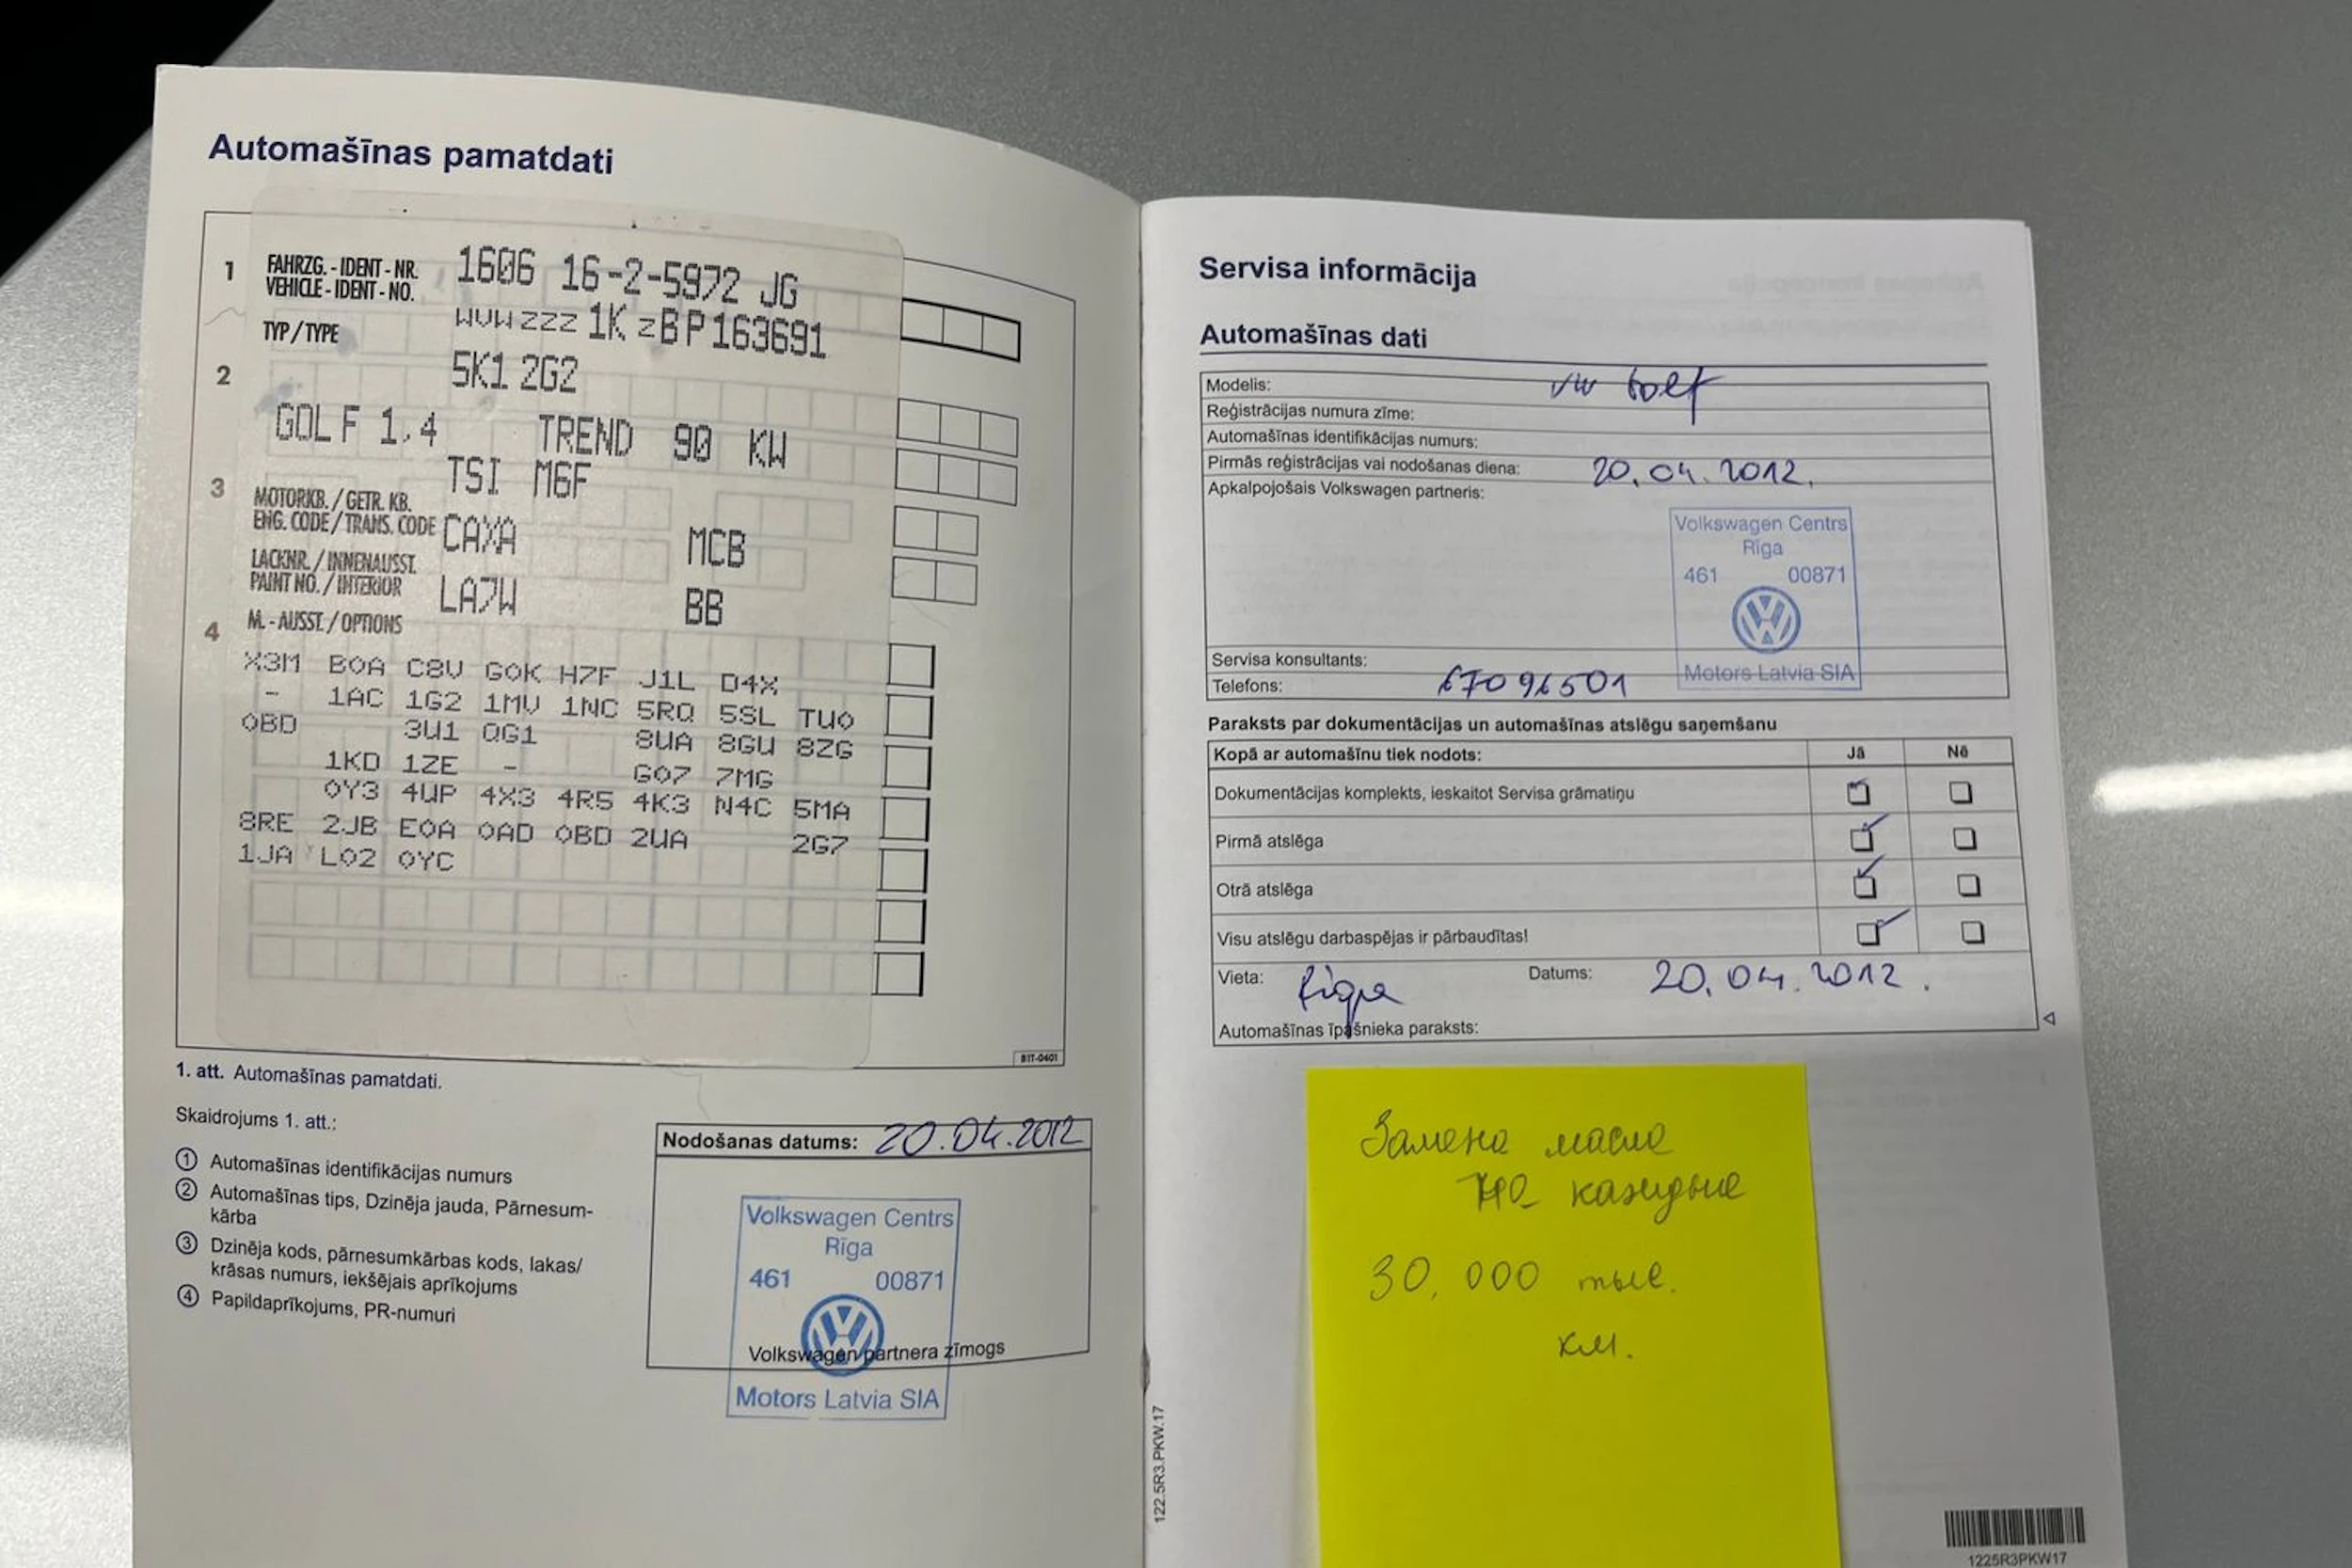 Automašīnas pamatdati
1 FAHRZG.-IDENT-NR. 1606 16-2-5972 JG
VEHICLE-IDENT-NO. WVWZZZ1KZBP163691
TYP/TYPE
2 5K1 2G2
GOLF 1,4 TREND 90 KW
TSI M6F
3 MOTORKB./GETR. KB.
ENG. CODE/TRANS. CODE CAXA MCB
LACKNR./INNENAUSST.
PAINT NO./INTERIOR LA7W BB
4 M.-AUSST./OPTIONS
X3M B0A C8V G0K H7F J1L D4X
- 1AC 1G2 1MV 1NC 5RQ 5SL TU0
0BD 3U1 QG1 8UA 8GU 8ZG
1KD 1ZE - G07 7MG
0Y3 4UP 4X3 4R5 4K3 N4C 5MA
8RE 2JB E0A 0AD 0BD 2UA 2G7
1JA L02 0YC
B1T-0401
1. att. Automašīnas pamatdati.
Skaidrojums 1. att.:
① Automašīnas identifikācijas numurs
② Automašīnas tips, Dzinēja jauda, Pārnesum-
kārba
③ Dzinēja kods, pārnesumkārbas kods, lakas/
krāsas numurs, iekšējais aprīkojums
④ Papildaprīkojums, PR-numuri
Nodošanas datums: 20.04.2012
Volkswagen Centrs
Rīga
461 00871
Volkswagen partnera zīmogs
Motors Latvia SIA
Servisa informācija
Automašīnas dati
Modelis: VW Golf
Reģistrācijas numura zīme:
Automašīnas identifikācijas numurs:
Pirmās reģistrācijas vai nodošanas diena: 20.04.2012.
Apkalpojošais Volkswagen partneris:
Volkswagen Centrs
Rīga
461 00871
Motors Latvia SIA
Servisa konsultants:
Telefons: 67096501
Paraksts par dokumentācijas un automašīnas atslēgu saņemšanu
Kopā ar automašīnu tiek nodots: Jā Nē
Dokumentācijas komplekts, ieskaitot Servisa grāmatiņu
Pirmā atslēga
Otrā atslēga
Visu atslēgu darbaspējas ir pārbaudītas!
Vieta: Rīga Datums: 20.04.2012.
Automašīnas īpašnieka paraksts:
Замена масла
каждые
30,000 тыс.
км.
122.5R3.PKW.17
1225R3PKW17